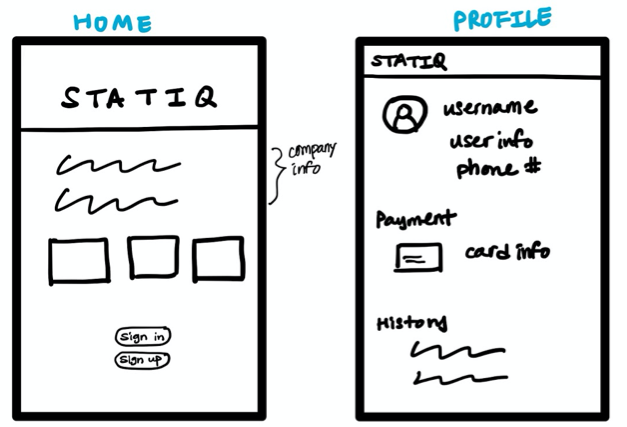 HOME
STATIQ
company
info
Sign in
Sign up
PROFILE
STATIQ
username
user info
phone #
Payment
card info
History